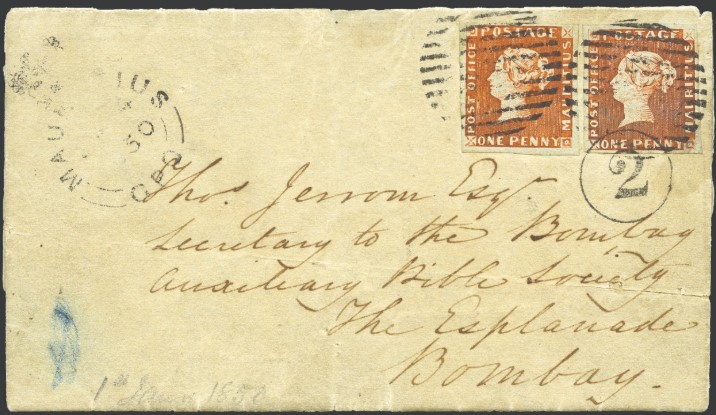 POST OFFICE POSTAGE MAURITIUS ONE PENNY
POST OFFICE POSTAGE MAURITIUS ONE PENNY
MAURITIUS
GPO
50
2
Thos. Jerrom Esqr
Secretary to the Bombay
Auxiliary Bible Society
The Esplanade
Bombay.